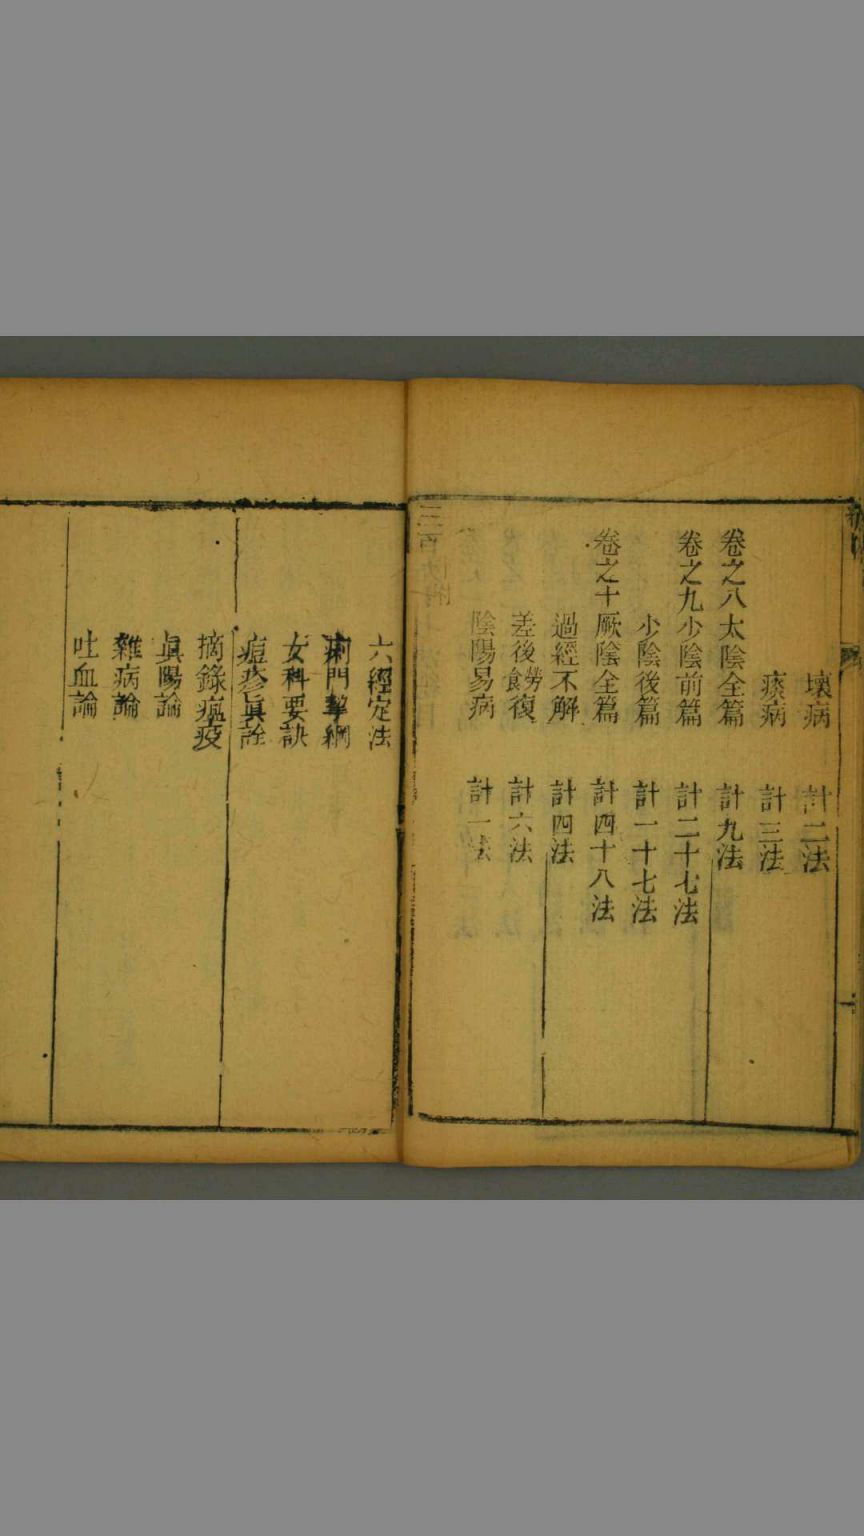 壞病 計二法
痰病 計三法
卷之八太陰全篇 計九法
卷之九少陰前篇 計二十七法
少陰後篇 計一十七法
卷之十厥陰全篇 計四十八法
過經不解 計四法
差後勞食復 計六法
陰陽易病 計一法
六經定法
痢門挈綱
女科要訣
痘疹眞詮
摘錄瘟疫
眞陽論
雜病論
吐血論